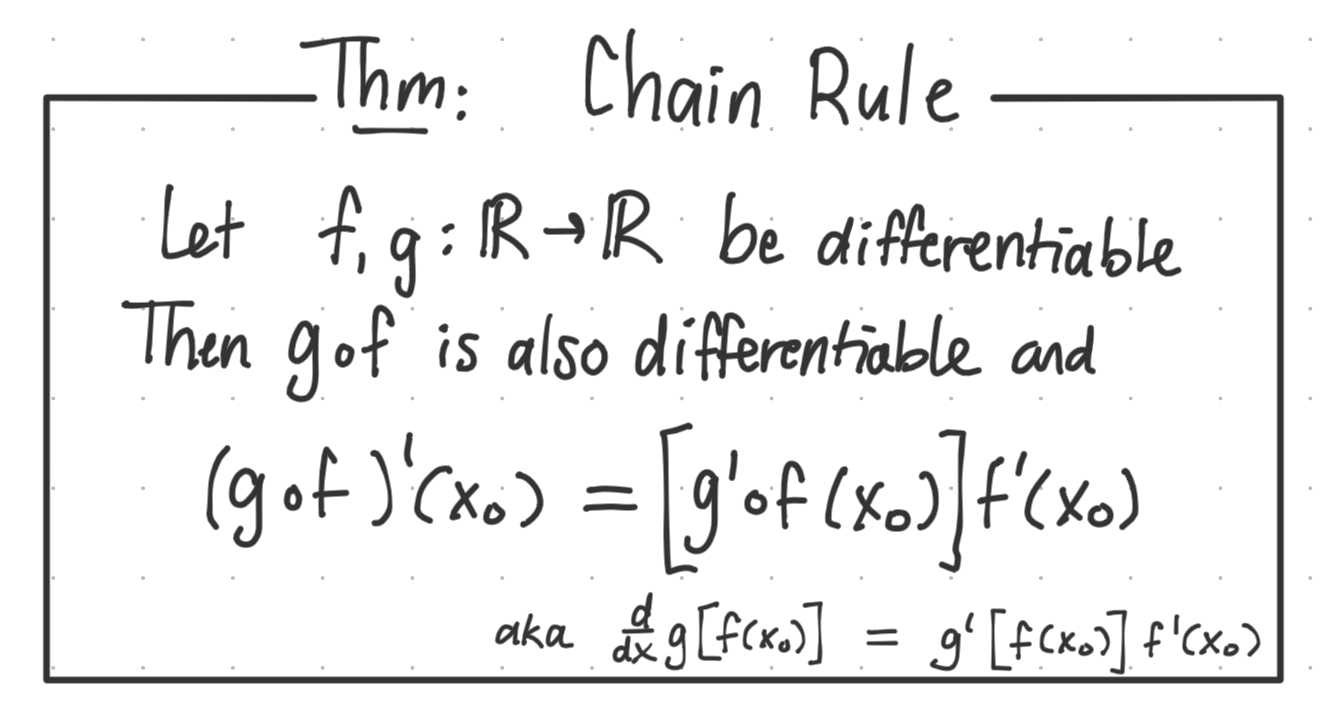 Thm: Chain Rule
Let f, g : ℝ → ℝ be differentiable
Then g∘f is also differentiable and
(g∘f)'(x₀) = [g'∘f(x₀)]f'(x₀)
aka d/dx g[f(x₀)] = g'[f(x₀)] f'(x₀)